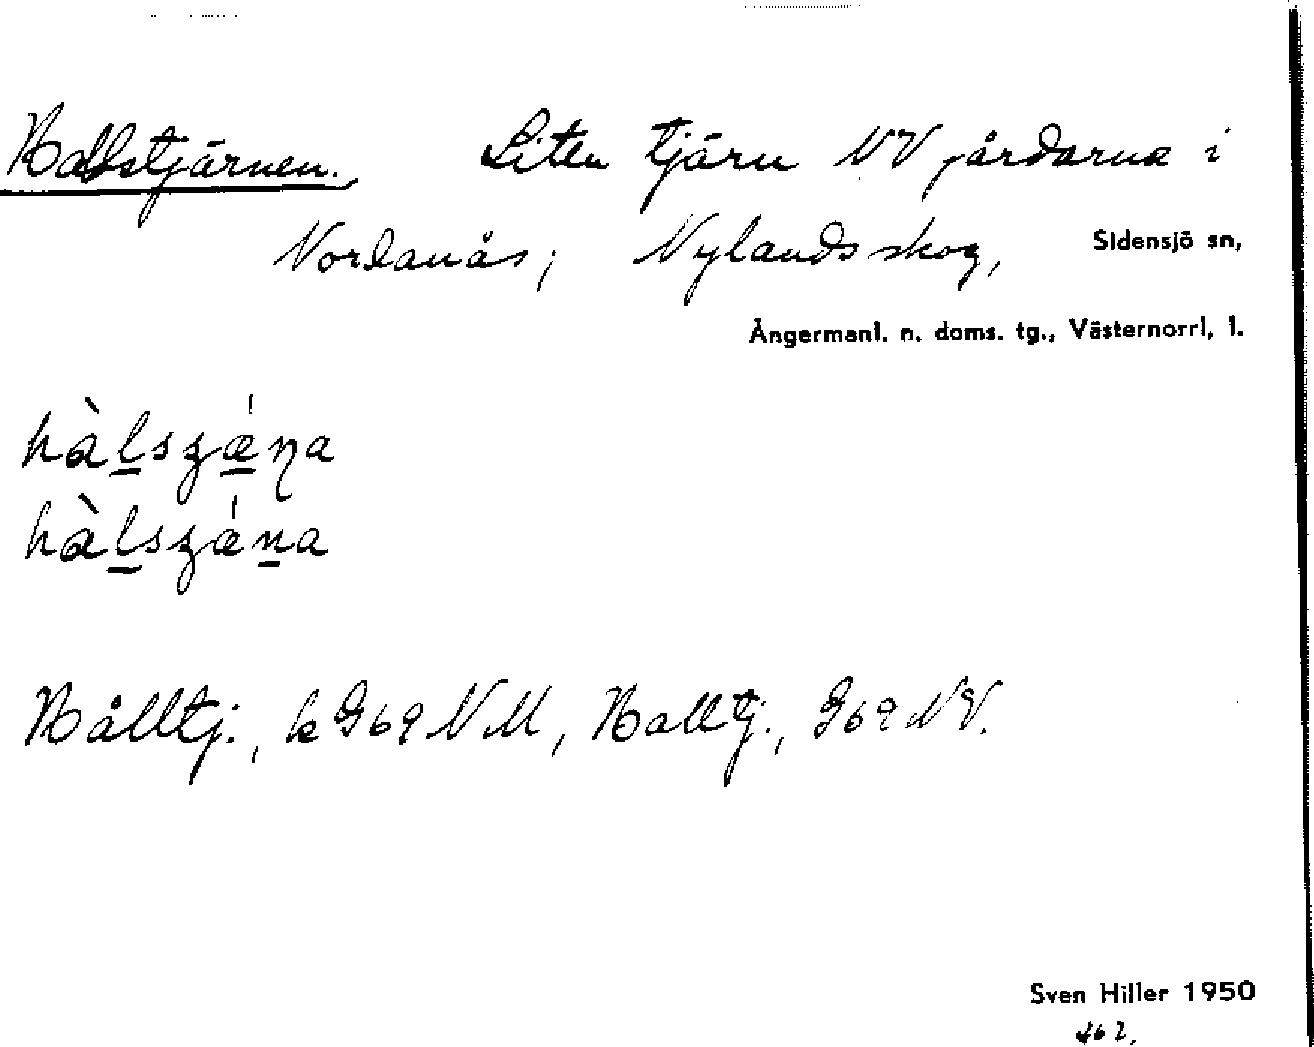 Hallstjärnen., Liten tjärn NV gårdarna i
Nordanås, Nylands skog, Sidensjö sn,
Ångermanl. n. doms. tg., Västernorrl, l.
hàlszǽŋa
hàlszǽna
Hålltj., k G69 NM, Halltj., G69 NV.
Sven Hiller 1950